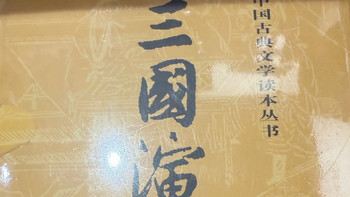 中国古典文学读本丛书
三國演